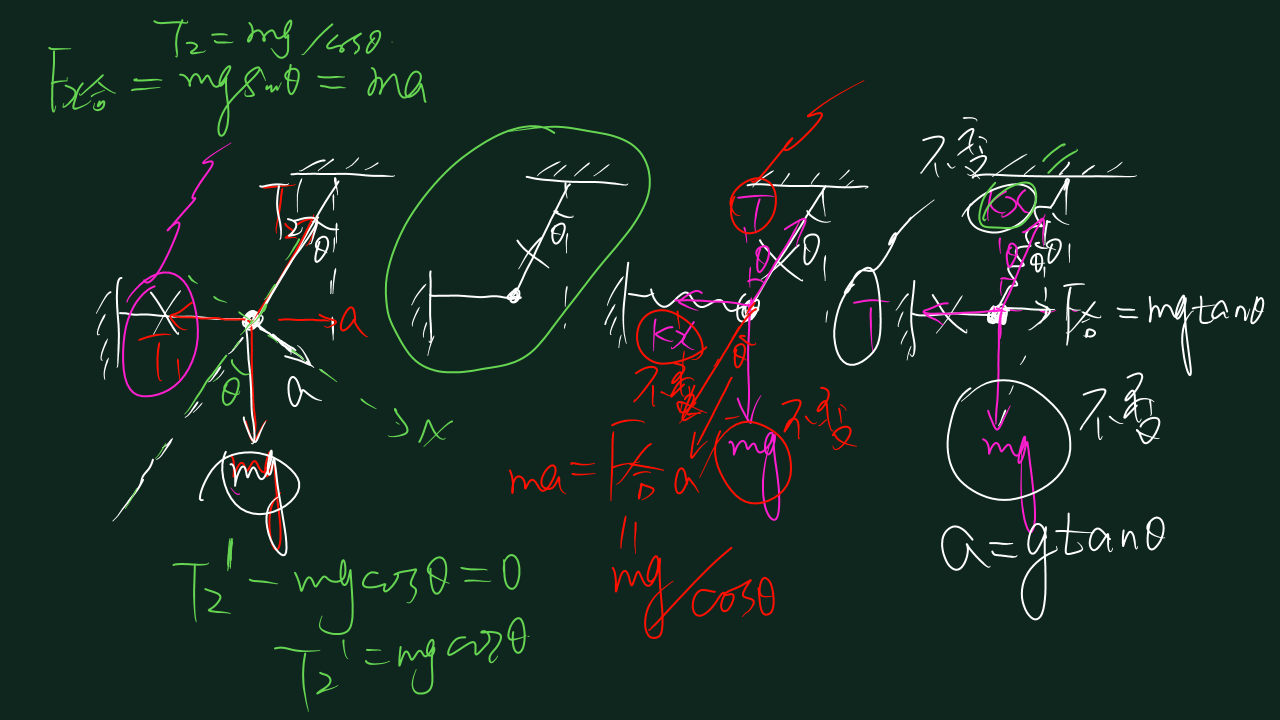 T₂ = mg/cosθ
Fx合 = mg sinθ = ma
T₂
θ
a
T₁
θ
a
x
mg
T₂' - mg cosθ = 0
T₂' = mg cosθ
θ
T
θ
θ
kx
不变
θ
mg
不变
ma = F合
a
=
mg/cosθ
不变
kx
θ
θ
T
F合 = mg tanθ
mg
不变
a = g tanθ